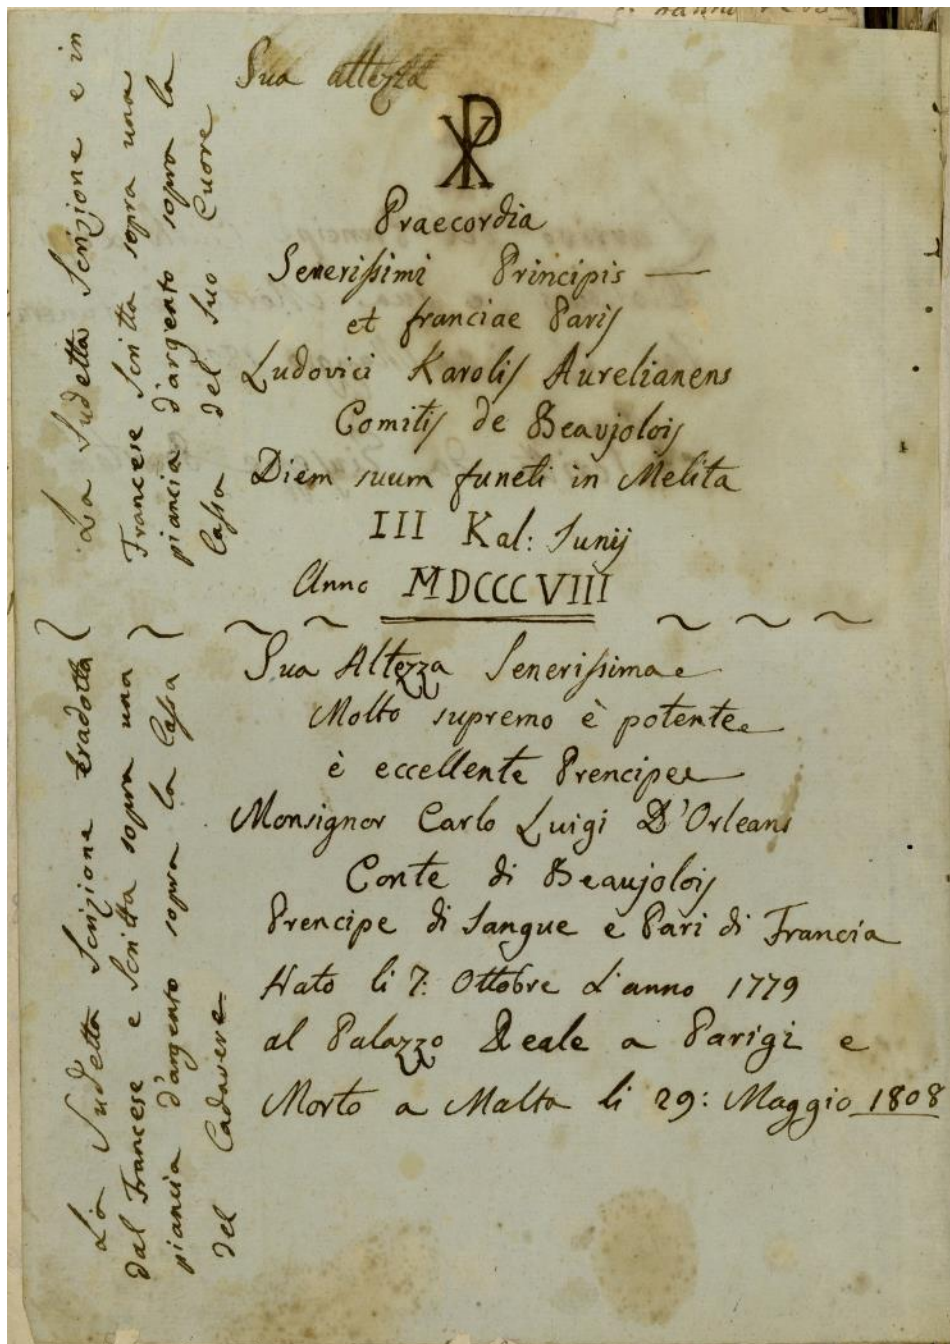 Sua altezza
Praecordia
Senerissimi Principis —
et franciae Paris
Ludovici Karolis Aurelianens
Comitis de Beaujolois
Diem suum funeti in Melita
III Kal: Junij
Anno MDCCCVIII
Sua Altezza Senerissima e
Molto supremo è potente
è eccellente Prencipe
Monsignor Carlo Luigi D'Orleans
Conte di Beaujolois
Prencipe di Sangue e Pari di Francia
Nato li 7: Ottobre L'anno 1779
al Palazzo Reale a Parigi e
Morto a Malta li 29: Maggio 1808
La Sudetta Scrizione e in
Francese Scritta sopra una
piancia d'argento sopra la
Cassa del suo Cuore
La Sudetta Scrizione tradotta
dal Francese e Scritta sopra una
piancia d'argento sopra la Cassa
del Cadavere